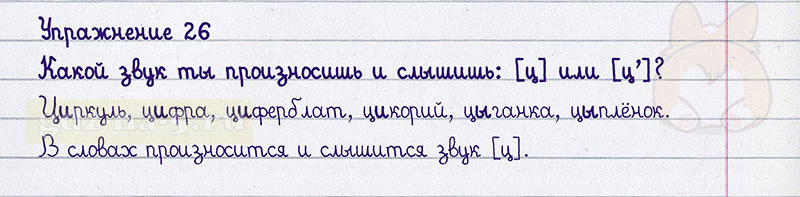 Упражнение 26
Какой звук ты произносишь и слышишь: [ц] или [ц']?
Циркуль, цифра, циферблат, цикорий, цыганка, цыплёнок.
В словах произносится и слышится звук [ц].